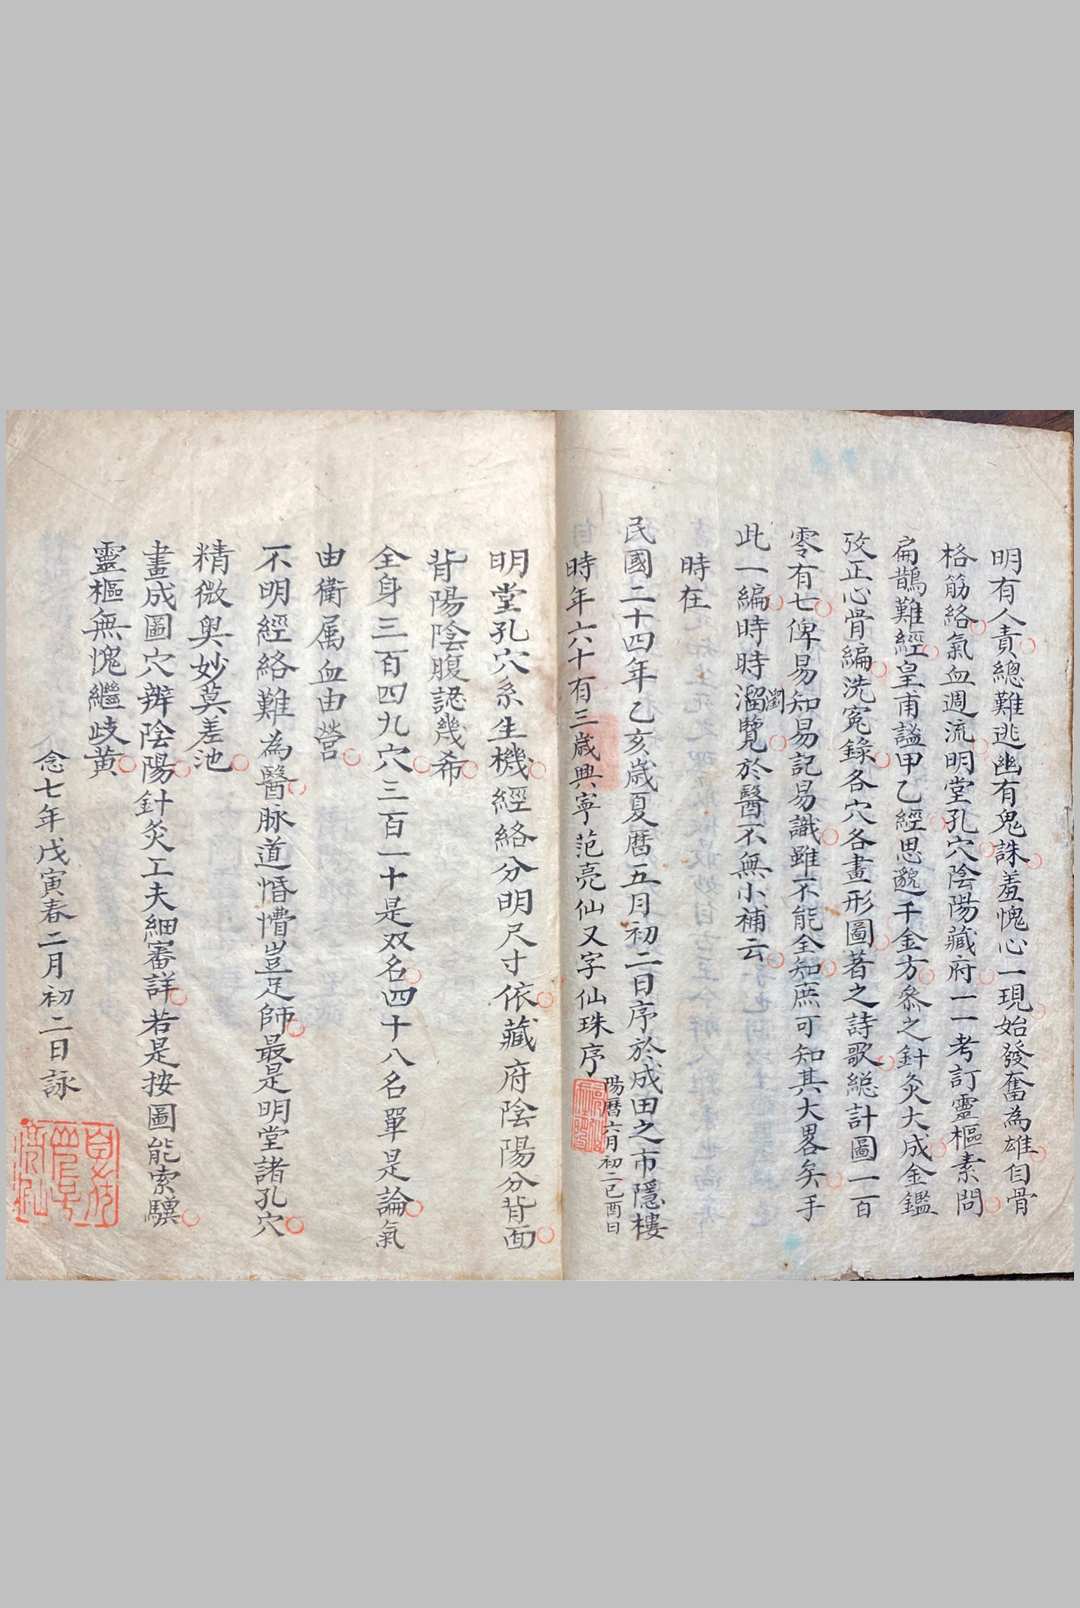 明有人責總難逃幽有鬼誅羞愧心一現始發奮為雄自骨
格筋絡氣血週流明堂孔穴陰陽藏府一一考訂靈樞素問
扁鵲難經皇甫謐甲乙經思邈千金方叅之針灸大成金鑑
攷正心骨編洗寃錄各穴各畫一形圖著之詩歌総計圖一百
零有七俾易知易記易識雖不能全知庶可知其大畧矣手
此一編時時溜覽於醫不無小補云
瀏
時在
民國二十四年乙亥歲夏曆五月初二日序於成田之市隱樓
陽曆六月初二己酉日
時年六十有三歲興寧范亮仙又字仙珠序
明堂孔穴系生機經絡分明尺寸依藏府陰陽分背面
背陽陰腹認幾希
全身三百四九穴三百一十是双名四十八名單是論氣
由衛属血由營
不明經絡難為醫脉道惛懵豈足師最是明堂諸孔穴
精微奥妙莫差池
畫成圖穴辨陰陽針灸工夫細審詳若是按圖能索驥
靈樞無愧繼歧黃
念七年戊寅春二月初二日詠